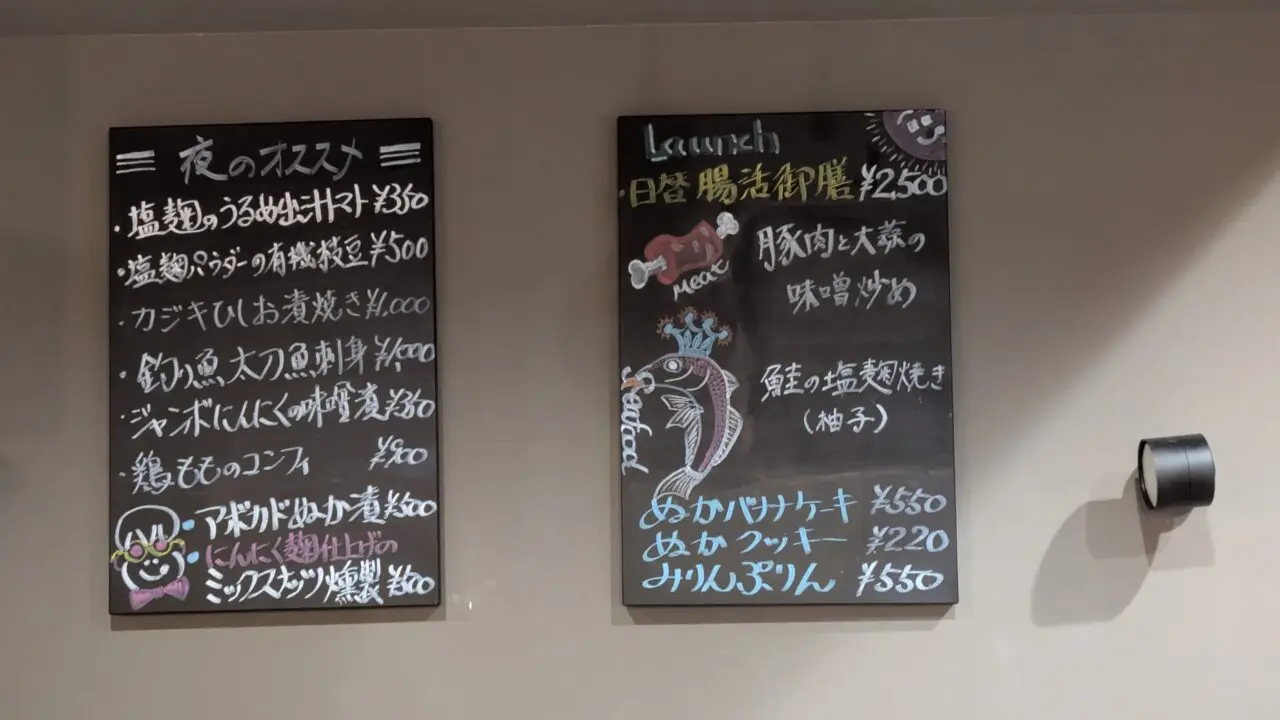 夜のオススメ
・塩麹のうるめ出汁トマト ¥350
・塩麹パウダーの有機枝豆 ¥500
・カジキひしお漬焼き ¥1,000
・釣り魚 太刀魚刺身 ¥1,000
・ジャンボにんにくの味噌漬 ¥350
・鶏もものコンフィ ¥900
・アボカドぬか漬 ¥500
・にんにく麹仕上げの
ミックスナッツ燻製 ¥500
Launch
・日替 腸活御膳 ¥2,500
Meat
豚肉と大蒜の
味噌炒め
Seafood
鮭の塩麹焼き
(柚子)
ぬかバナナケーキ ¥550
ぬかクッキー ¥220
みりんぷりん ¥550